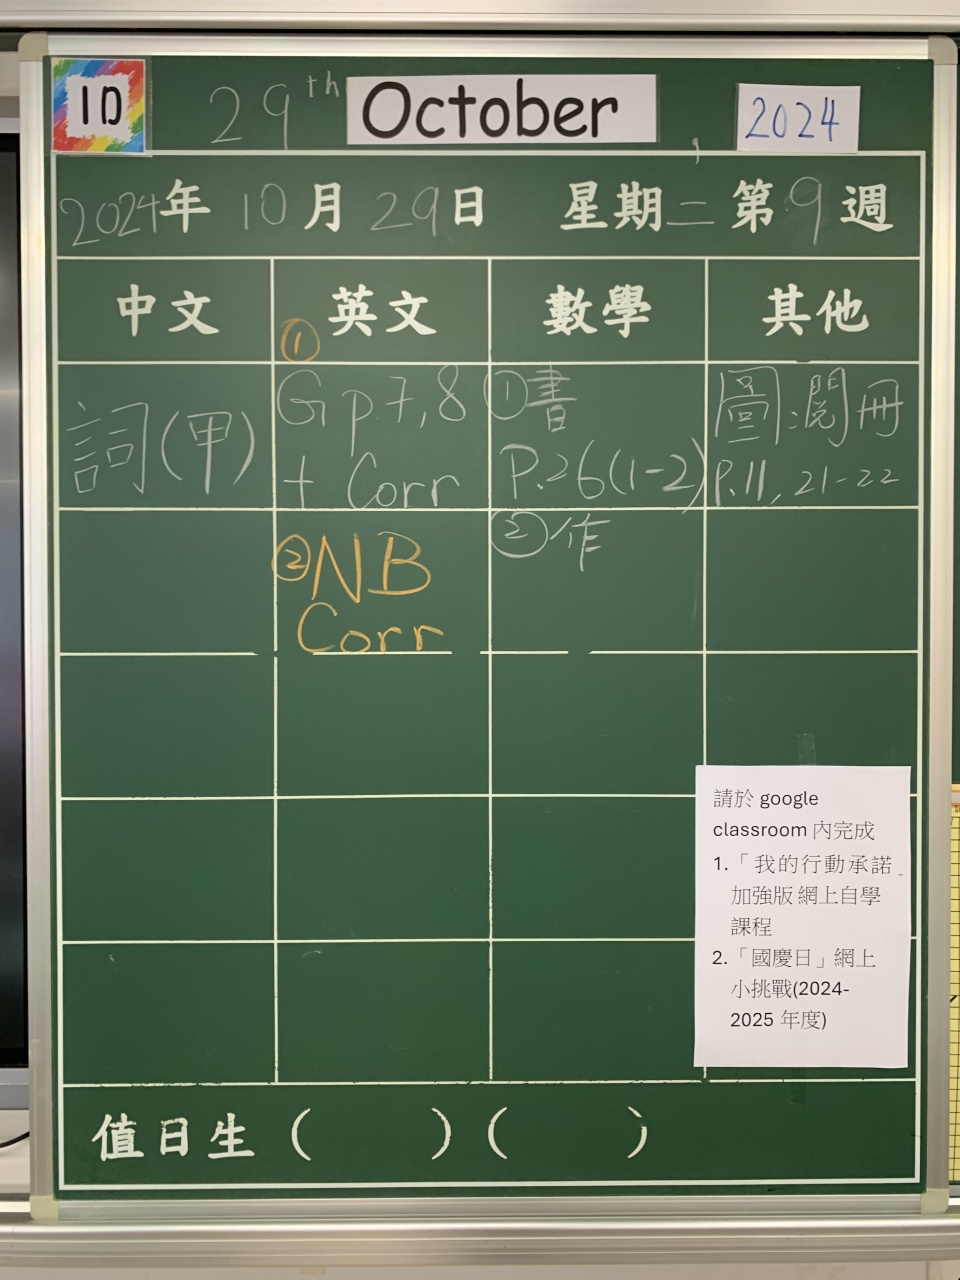 1D
29th October, 2024
2024年 10月 29日 星期二 第9週
中文
英文
數學
其他
詞(甲)
①
G p.7,8
+ Corr
②NB
Corr
①書
P.26(1-2)
②作
圖:閱冊
P.11, 21-22
請於 google
classroom 內完成
1.「我的行動承諾
加強版 網上自學
課程
2.「國慶日」網上
小挑戰(2024-
2025 年度)
值日生 (    ) (    )